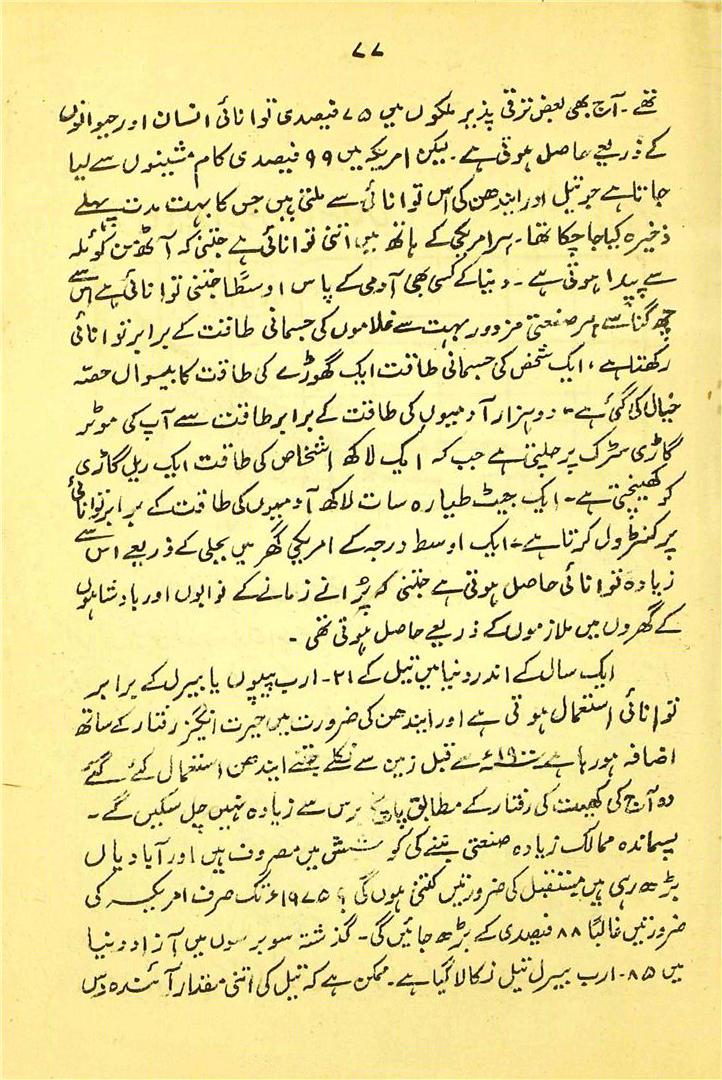 ۷۷
تھے۔ آج بھی بعض ترقی پذیر ملکوں میں ۷۵ فیصدی توانائی انسان اور حیوانوں
کے ذریعے حاصل ہوتی ہے۔ لیکن امریکہ میں ۹۹ فیصدی کام مشینوں سے لیا
جاتا ہے جو تیل اور ایندھن کی اس توانائی سے ملتی ہیں جس کا بہت مدت پہلے
ذخیرہ کیا جا چکا تھا۔ ہر امریکی کے ہاتھ میں اتنی توانائی ہے جتنی کہ آٹھ ٹن کوئلہ
سے پیدا ہوتی ہے۔ دنیا کے کسی بھی آدمی کے پاس اوسطاً جتنی توانائی ہے اس سے
چھ گنا سے ہر صنعتی مزدور بہت سے غلاموں کی جسمانی طاقت کے برابر توانائی
رکھتا ہے، ایک شخص کی جسمانی طاقت ایک گھوڑے کی طاقت کا بیسواں حصہ
خیال کی گئی ہے۔ دو ہزار آدمیوں کی طاقت کے برابر طاقت سے آپ کی موٹر
گاڑی سڑک پر چلتی ہے جب کہ ایک لاکھ اشخاص کی طاقت ایک ریل گاڑی
کو کھینچتی ہے۔ ایک جیٹ طیارہ سات لاکھ آدمیوں کی طاقت کے برابر توانائی
پر کنٹرول کرتا ہے۔ ایک اوسط درجہ کے امریکی گھر میں بجلی کے ذریعے اس سے
زیادہ توانائی حاصل ہوتی ہے جتنی کہ پرانے زمانے کے نوابوں اور بادشاہوں
کے گھروں میں ملازموں کے ذریعے حاصل ہوتی تھی۔
ایک سال کے اندر دنیا میں تیل کے ۲۱۔ ارب پیپوں یا بیرل کے برابر
توانائی استعمال ہوتی ہے اور ایندھن کی ضرورت میں حیرت انگیز رفتار کے ساتھ
اضافہ ہو رہا ہے ۱۹۰۰ء سے قبل زمین سے نکلے جتنے ایندھن استعمال کئے گئے
وہ آج کی کھپت کی رفتار کے مطابق پانچ برس سے زیادہ نہیں چل سکیں گے۔
پسماندہ ممالک زیادہ صنعتی بننے کی کوشش میں مصروف ہیں اور آبادیاں
بڑھ رہی ہیں مستقبل کی ضرورتیں کتنی ہوں گی؟ ۱۹۷۵ء تک صرف امریکہ کی
ضرورتیں غالباً ۸۸ فیصدی کے بڑھ جائیں گی۔ گذشتہ سو برسوں میں آزاد دنیا
میں ۸۵۔ ارب بیرل تیل نکالا گیا ہے۔ ممکن ہے کہ تیل کی اتنی مقدار آئندہ دس